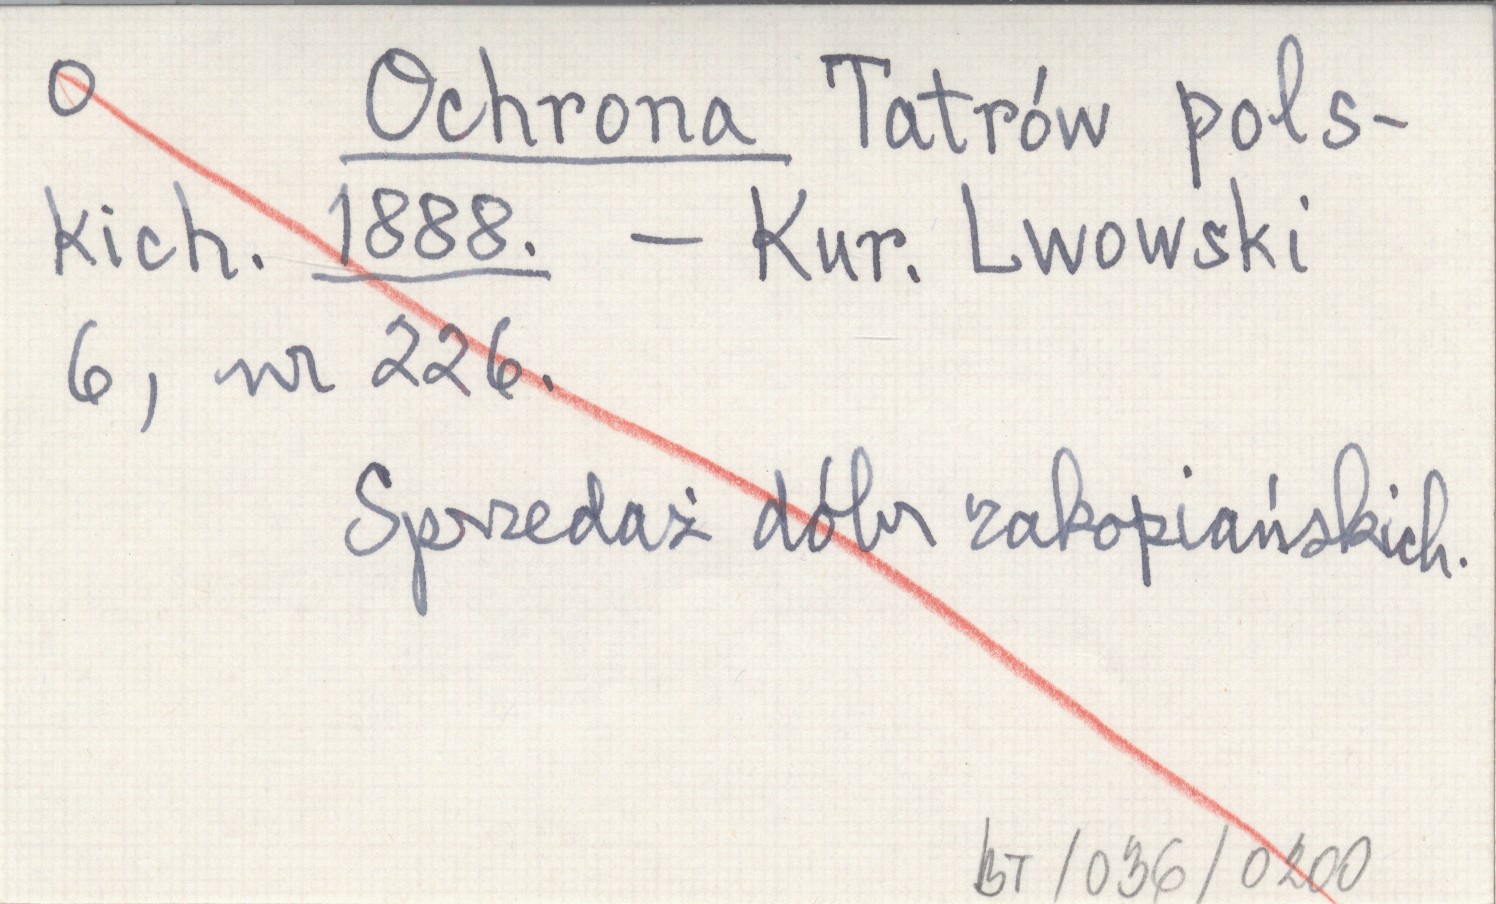 O Ochrona Tatrów pols-
kich. 1888. – Kur. Lwowski
6, nr 226.
Sprzedaż dóbr zakopiańskich.
BT/036/0200